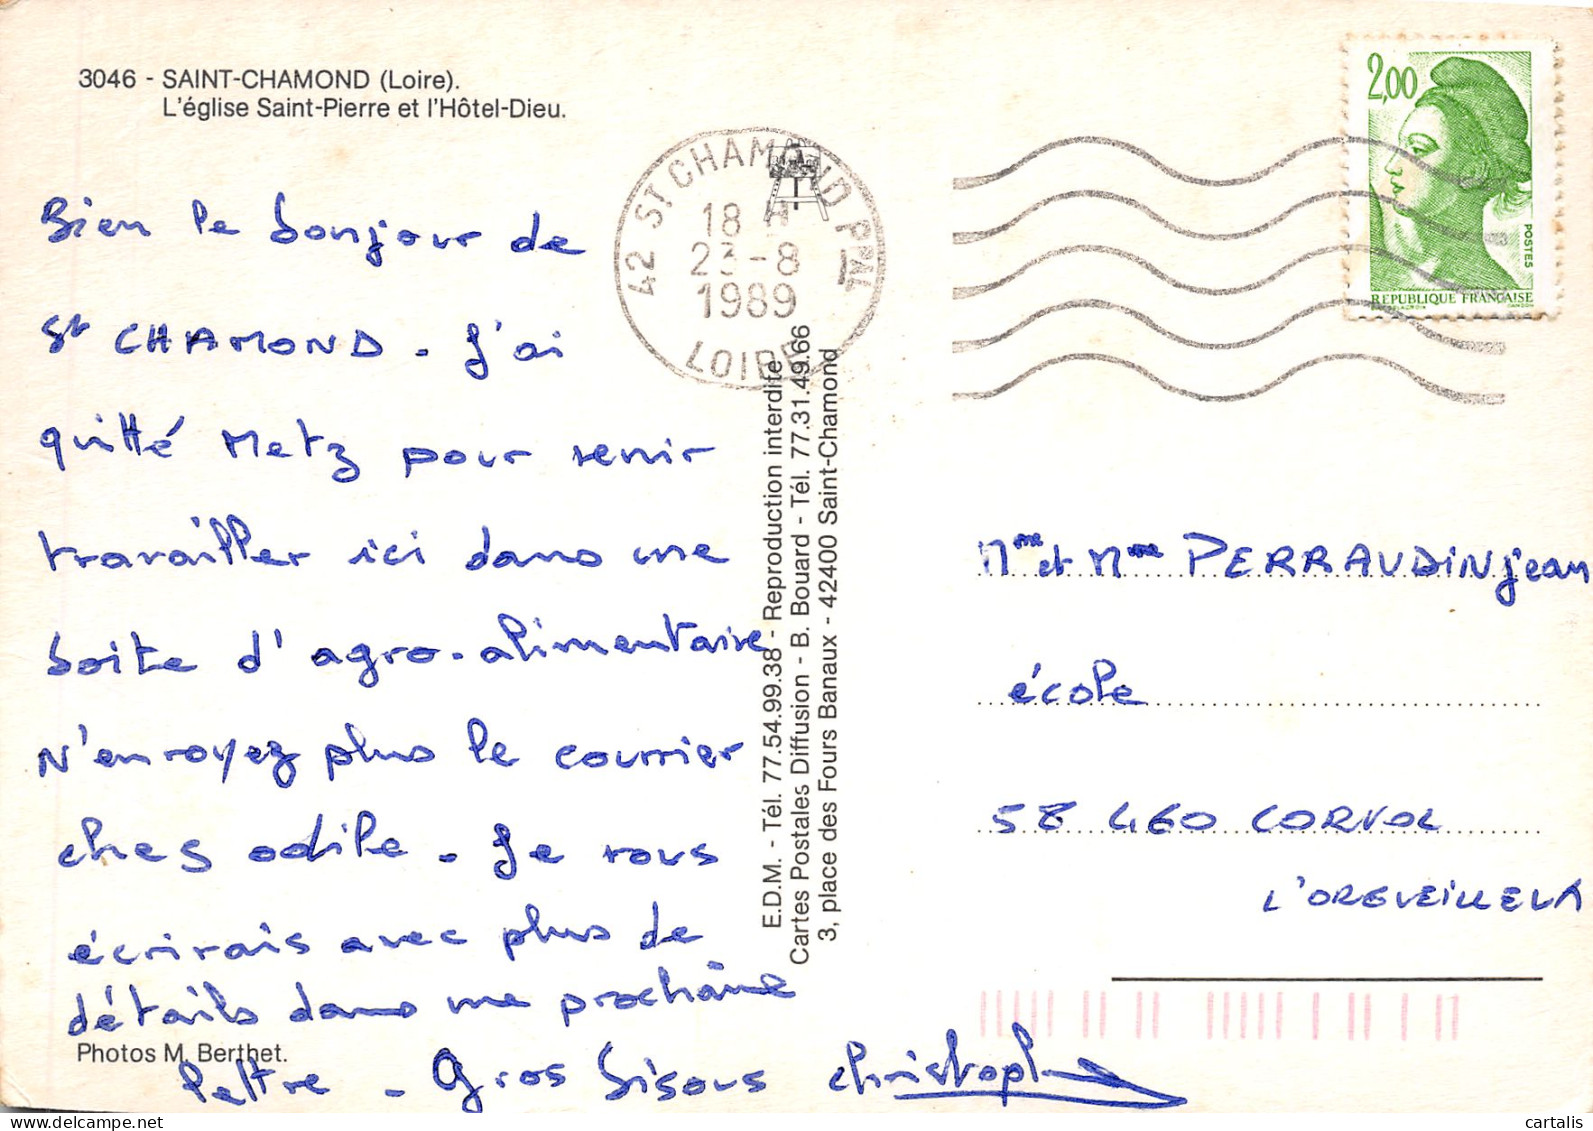 3046 - SAINT-CHAMOND (Loire).
L'église Saint-Pierre et l'Hôtel-Dieu.
Bien le bonjour de
St CHAMOND - J'ai
quitté Metz pour venir
travailler ici dans une
boite d'agro-alimentaire
N'envoyez plus le courrier
chez odile - Je vous
écrirais avec plus de
détails dans une prochaine
Photos M. Berthet.
lettre - Gros bisous christoph
42 ST CHAMOND PPAL
18 H
23-8
1989
LOIRE
E.D.M. - Tél. 77.54.99.38 - Reproduction interdite
Cartes Postales Diffusion - B. Bouard - Tél. 77.31.49.66
3, place des Fours Banaux - 42400 Saint-Chamond
2,00
POSTES
REPUBLIQUE FRANÇAISE
GANDON
Mme et Mme PERRAUDIN jean
école
58 460 CORVOL
L'ORGUEILLEUX
cartalis